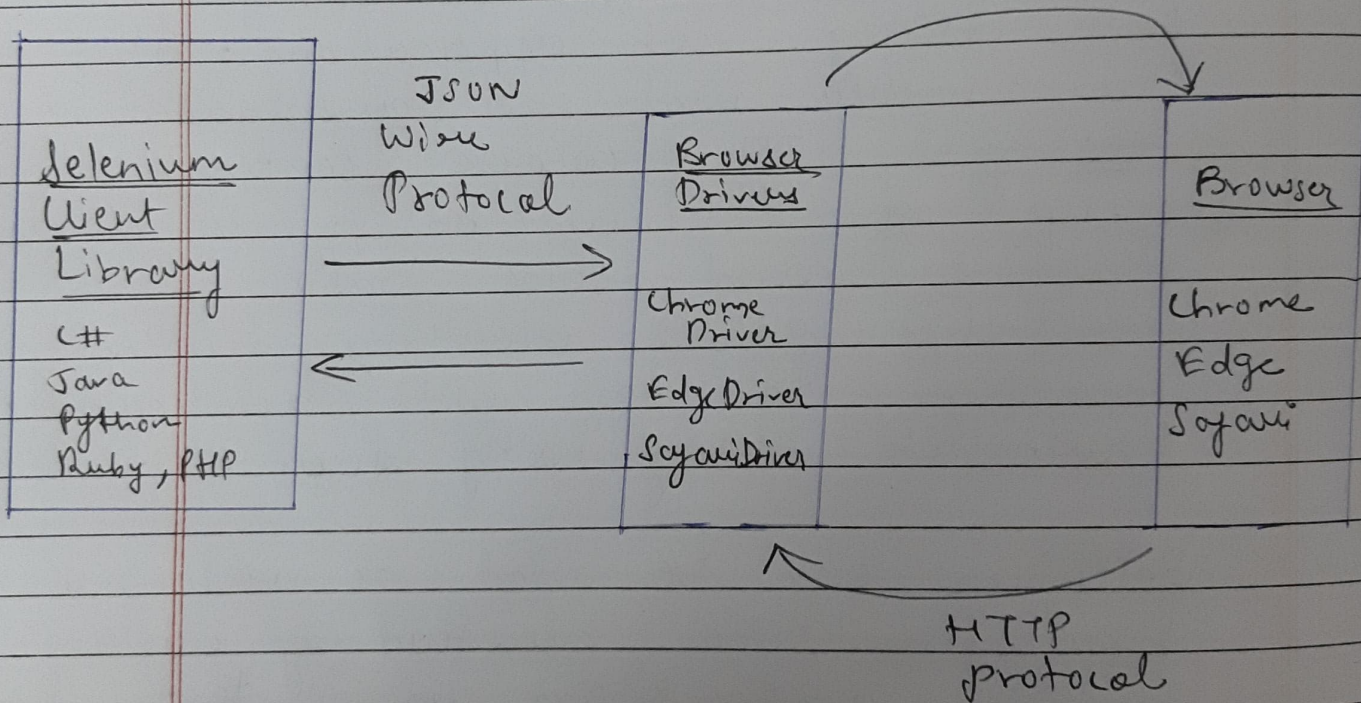 Selenium
Client
Library
C#
Java
Python
Ruby, PHP
JSON
Wire
Protocal
Browser
Drivers
Chrome
Driver
EdgeDriver
SafariDriver
Browser
Chrome
Edge
Safari
HTTP
protocal